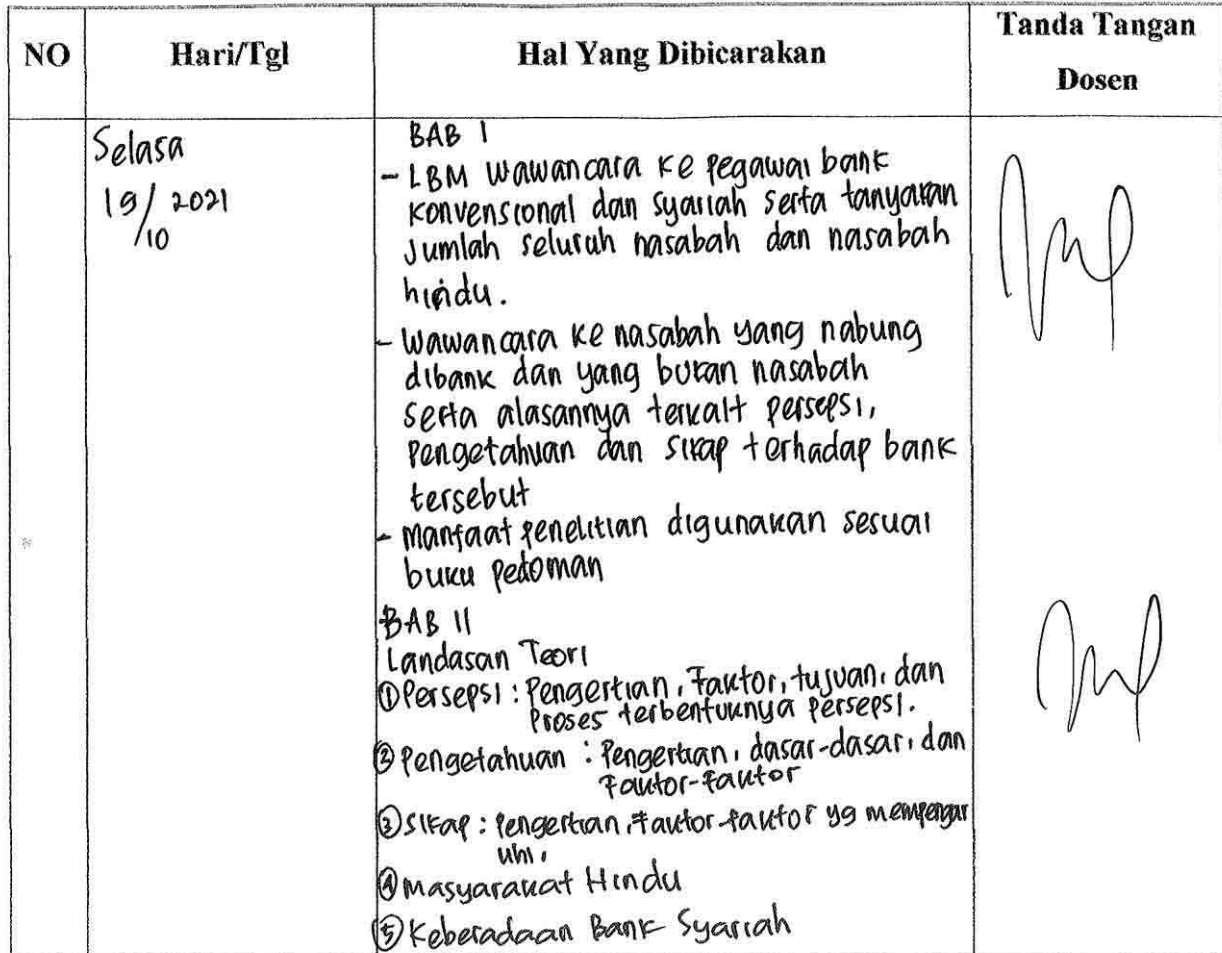 NO Hari/Tgl Hal Yang Dibicarakan Tanda Tangan Dosen
Selasa
19/10 2021
BAB I
- LBM wawancara ke pegawai bank
konvensional dan syariah serta tanyakan
jumlah seluruh nasabah dan nasabah
hindu.
- Wawancara ke nasabah yang nabung
dibank dan yang bukan nasabah
serta alasannya terkait persepsi,
pengetahuan dan sikap terhadap bank
tersebut
- Manfaat penelitian digunakan sesuai
buku pedoman
BAB II
Landasan Teori
① Persepsi : Pengertian, Faktor, tujuan, dan
Proses terbentuknya persepsi.
② Pengetahuan : Pengertian, dasar-dasar, dan
Faktor-faktor
③ Sikap : Pengertian, Faktor-faktor yg mempengar
uhi,
④ Masyarakat Hindu
⑤ Keberadaan Bank Syariah